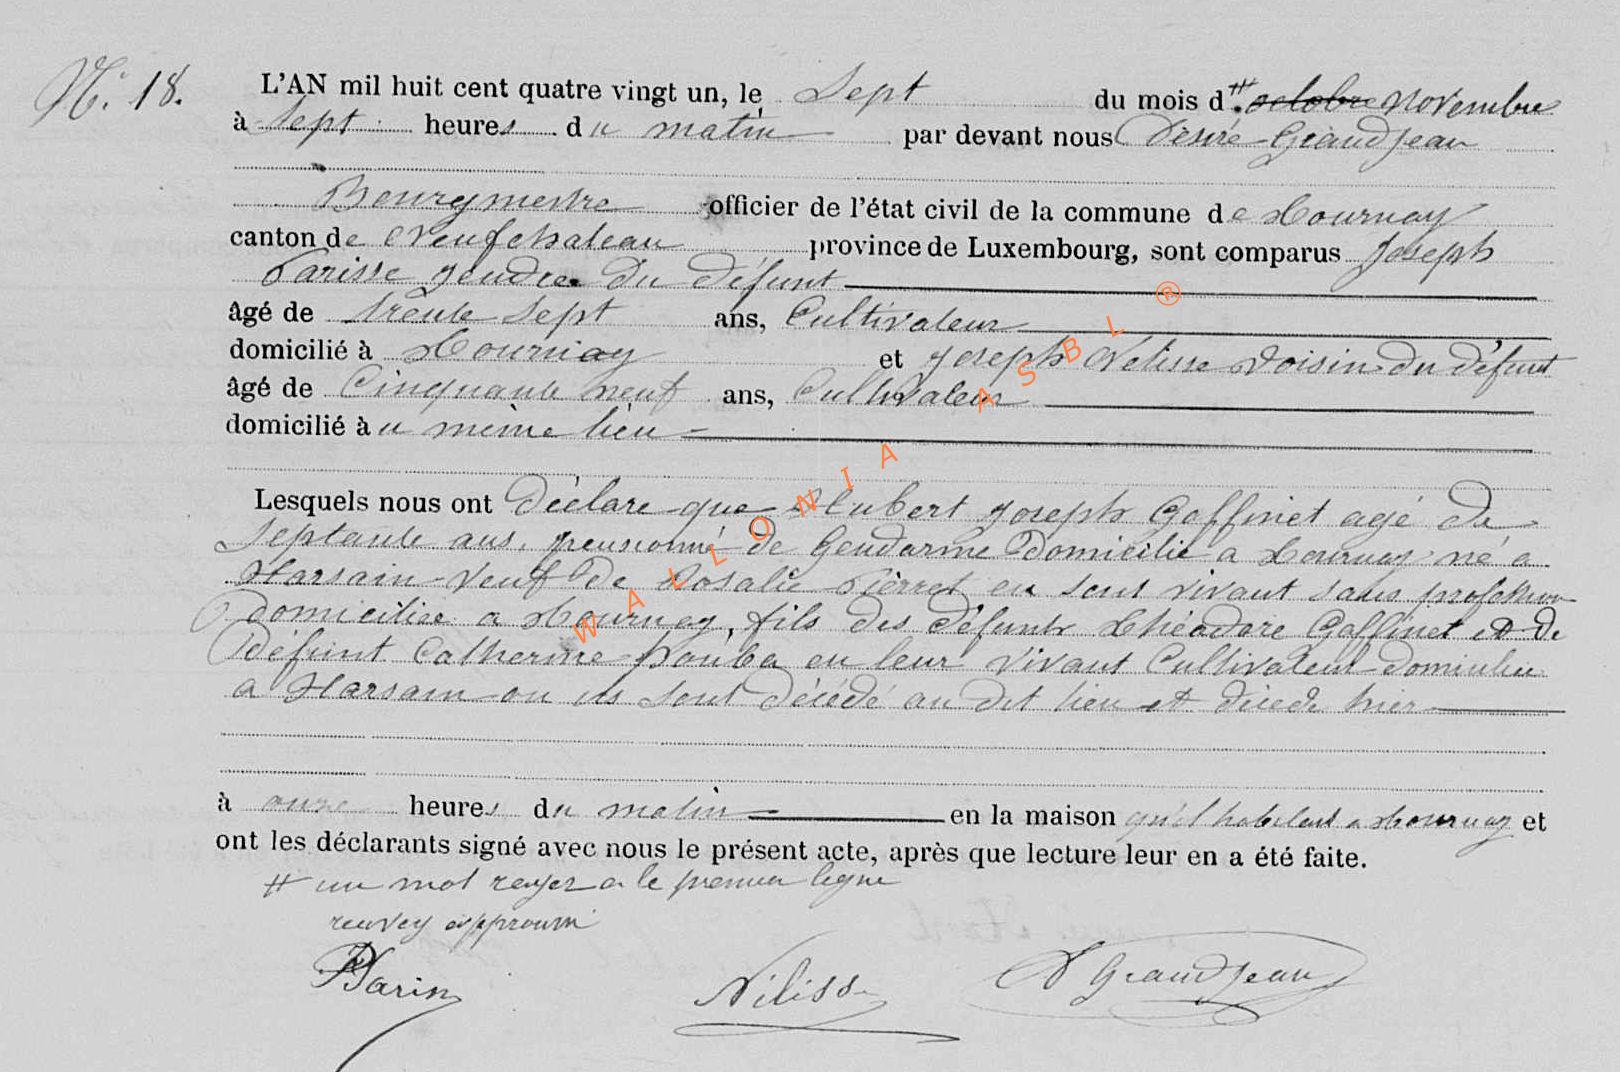 N.° 18.
L'AN mil huit cent quatre vingt un, le Sept du mois d # octobre novembre
à Sept heures du matin par devant nous Désiré Grandjean
Bourgmestre officier de l'état civil de la commune de Tournay
canton de Neufchateau province de Luxembourg, sont comparus Joseph
Parisse gendre du défunt
âgé de trente Sept ans, Cultivateur
domicilié à Tournay et Joseph Nelisse voisin du défunt
âgé de Cinquante neuf ans, Cultivateur
domicilié au même lieu
Lesquels nous ont déclare que Hubert Joseph Goffinet agé de
Septante ans, pensionné de Gendarme domicilié a Tournay né a
Harsain veuf de Rosalie Pierret en sont vivant sans profession
domiciliée a Tournay, fils des défunts Théodore Goffinet et de
défunt Catherine en leur vivant Cultivateur domicilié
a Harsain ou ils sont décédé au dit lieu et décédé hier
à onze heures du matin en la maison qu'il habitait a Tournay et
ont les déclarants signé avec nous le présent acte, après que lecture leur en a été faite.
# un mot rayer a le premier ligne
renvoy approuvé
Néliss
D Grandjean
WALLONIA ASBL ®